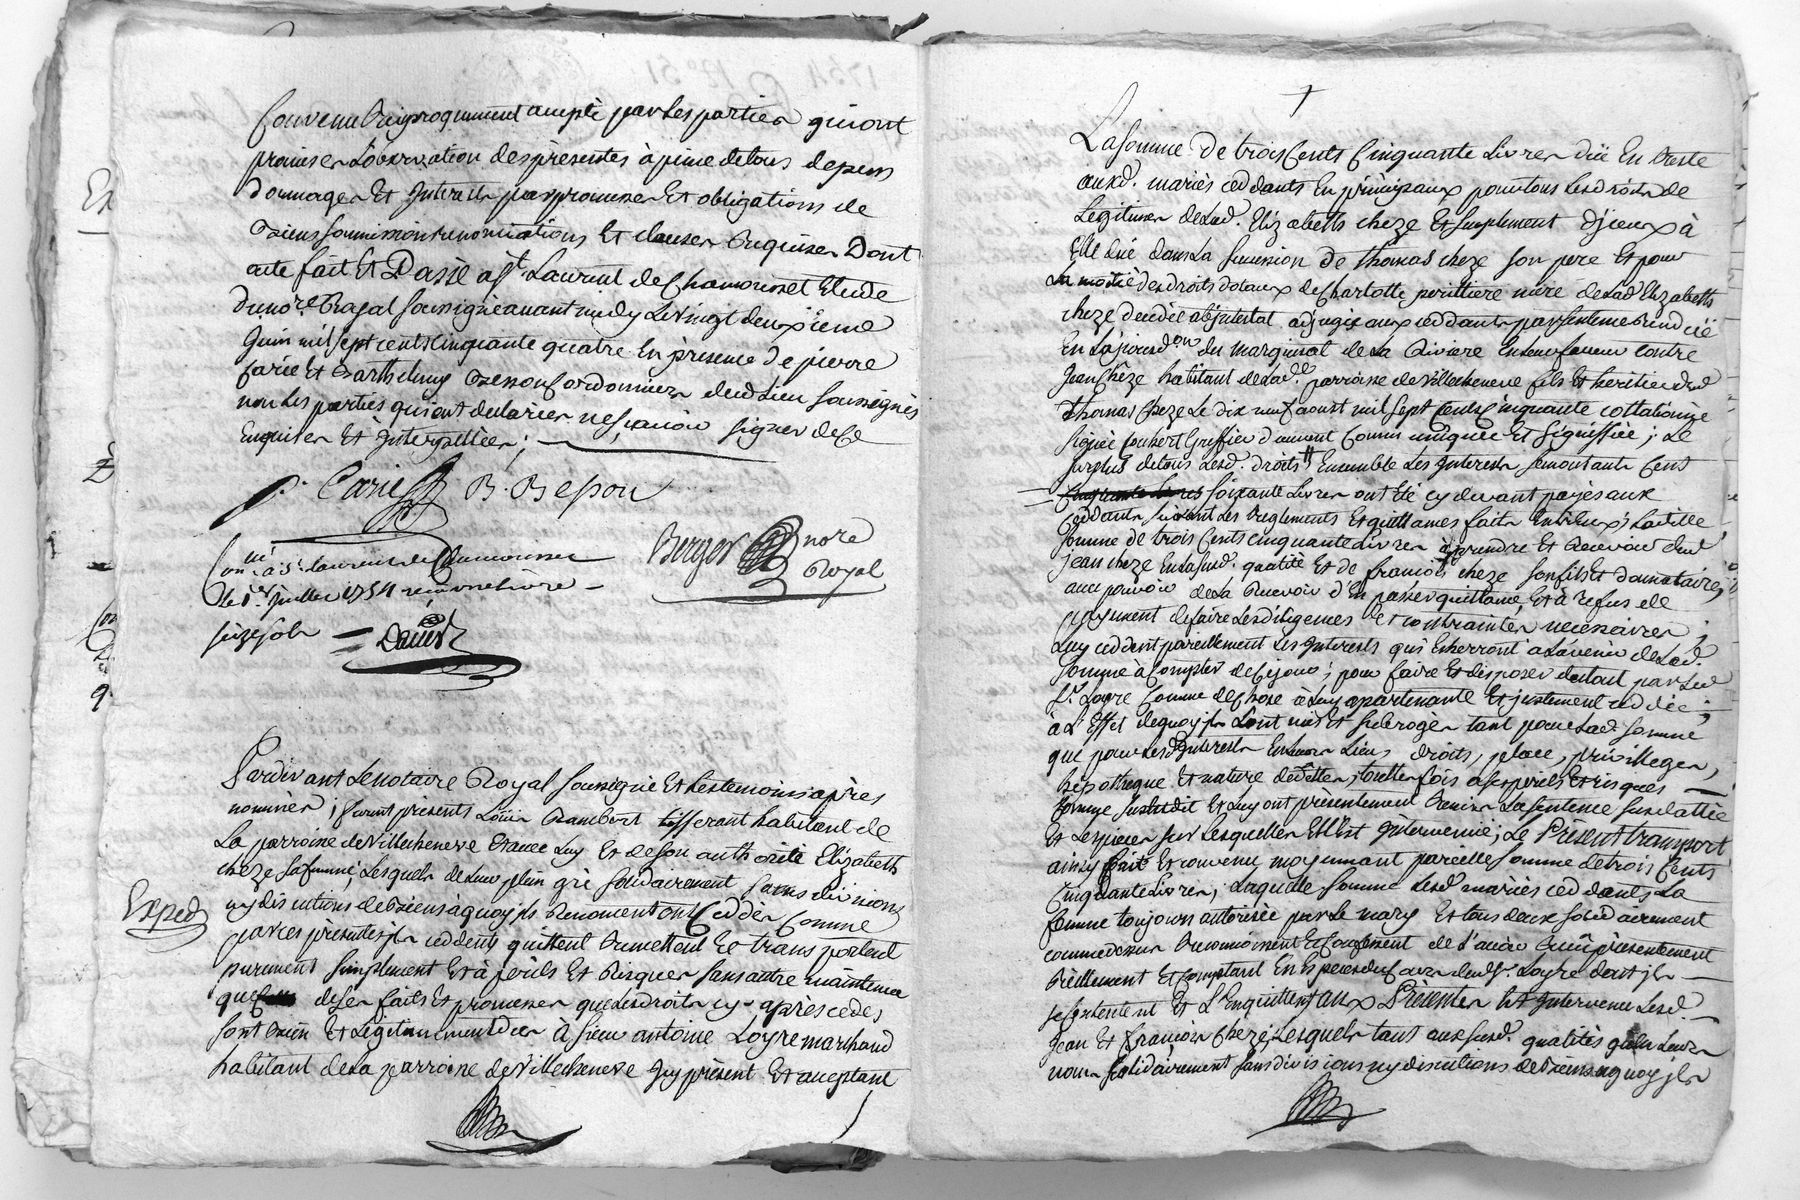 Convenu Reciproquement accepté par les parties qui ont
promis en l'observation des presentes à peine de tous depens
dommages Et Interests par promesses Et obligations de
biens soumissions renonciations Et clauses Requises Dont
acte fait Et Passé a St. Laurent de Chamousset Etude
du nore. Royal soussigné avant midy Le vingt deuxieme
Juin mil sept cent cinquante quatre En présence de pierre
Carié Et Barthelemy Besson Cordonniers dud Lieu soussignés
non Les parties qui ont declarées ne sçavoir signer de ce
Enquises Et Interpellées ;
P. Carié B. Besson
Berger nore
Royal
Con.lé à St. Laurent de Chamousset
le 1er Juillet 1754 reçu une livre
seize sols
Pardevant Le notaire Royal soussigné Et Les temoins après
nommés ; furent presents Louis Rambert tisserant habitant de
La parroisse de Villecheneve Et avec Luy Et de son authorité Elizabeth
cheze sa femme, Lesquels de Leur plein gré solidairement sans divisions
ny discutions de biens à quoy ils Renoncent ont Ceddés Comme
par ces présentes ils ceddent, quittent Remettent Et transportent
Exped
purement simplement Et à périls Et Risques sans autre maintenue
que de ses faits Et promesses que Les droits cy-après cedés
sont bien Et Légitimement dues à sieur antoine Loyre marchand
habitant de La parroisse de Villecheneve Icy présent Et acceptant
La somme de trois Cents Cinquante Livres düe En Reste
auxd. mariés ceddants En principaux pour tous Les droits de
Legitimes de Lad. Elizabeth cheze Et suplement d'jceux à
Elle düe dans La succession de thomas cheze son pere Et pour
La moitié des droits dotaux de Charlotte perittiere mere de Lad Elizabeth
cheze decedée abjntestat adjugée aux ceddants par sentence Rendüe
En La jurisd.on du marquisat de La Riviere En Leur faveur contre
Jean Chèze habitant de Lad.e parroisse de Villecheneve fils Et heritier dud
thomas cheze Le dix neuf aoust mil sept Cents Cinquante collationnée
signée Coubert Greffier duement Communiquée Et signiffiée ; Le
surplus de tous Lesd. droits Ensemble Les Interests se montant Cent
soixante Livres ont Eté cy devant payés aux
Ceddants suivant Les Reglements Et quittances faits Entr'eux ; Laditte
somme de trois Cents cinquante Livres à prendre Et Recevoir dud
jean cheze En La susd. qualité Et de françois cheze son fils Et donnataire,
avec pouvoir de La Recevoir d'En passer quittance, Et à refus de
payement de faire Les diligences Et contraintes necessaires ;
Luy ceddent pareillement Les Interests qui Echerront à L'avenir de Lad.
somme à Compter de Ce jour ; pour faire Et disposer du tout par Led
Sr. Loyre Comme de Chose à Luy apartenante Et justement ceddée ;
à L'Effet de quoy ils L'ont mis Et subrogés tant pour Lad. somme
que pour Lesd Interests En Leurs Lieu droits, place, privilleges,
hipotheque Et nature de debtes ; touttes fois a ses perils Et risques
Comme susdit Et Luy ont présentement Remise La sentence susdattée
Et Les pieces sur Lesquelles Elle Est Intervenüe ; Le Présent transport
ainsy fait Et convenu moyennant pareille somme de trois Cents
Cinquante Livres ; Laquelle somme Lesd mariés ceddants La
femme toujours autorisée par Le mary Et tous deux solidairement
comme dessus Reconnoissent Et Confessent de L'avoir Reçüe présentement
Réellement Et Comptant En Especes du Cours dud Sr. Loyre dont ils
se Contentent Et L'Enquittent aux Présentes Est Intervenu Lesd.
Jean Et françois cheze Lesquels tant aux susd. qualités qu'En Leurs
noms solidairement sans divisions ny discutions de biens a quoy ils